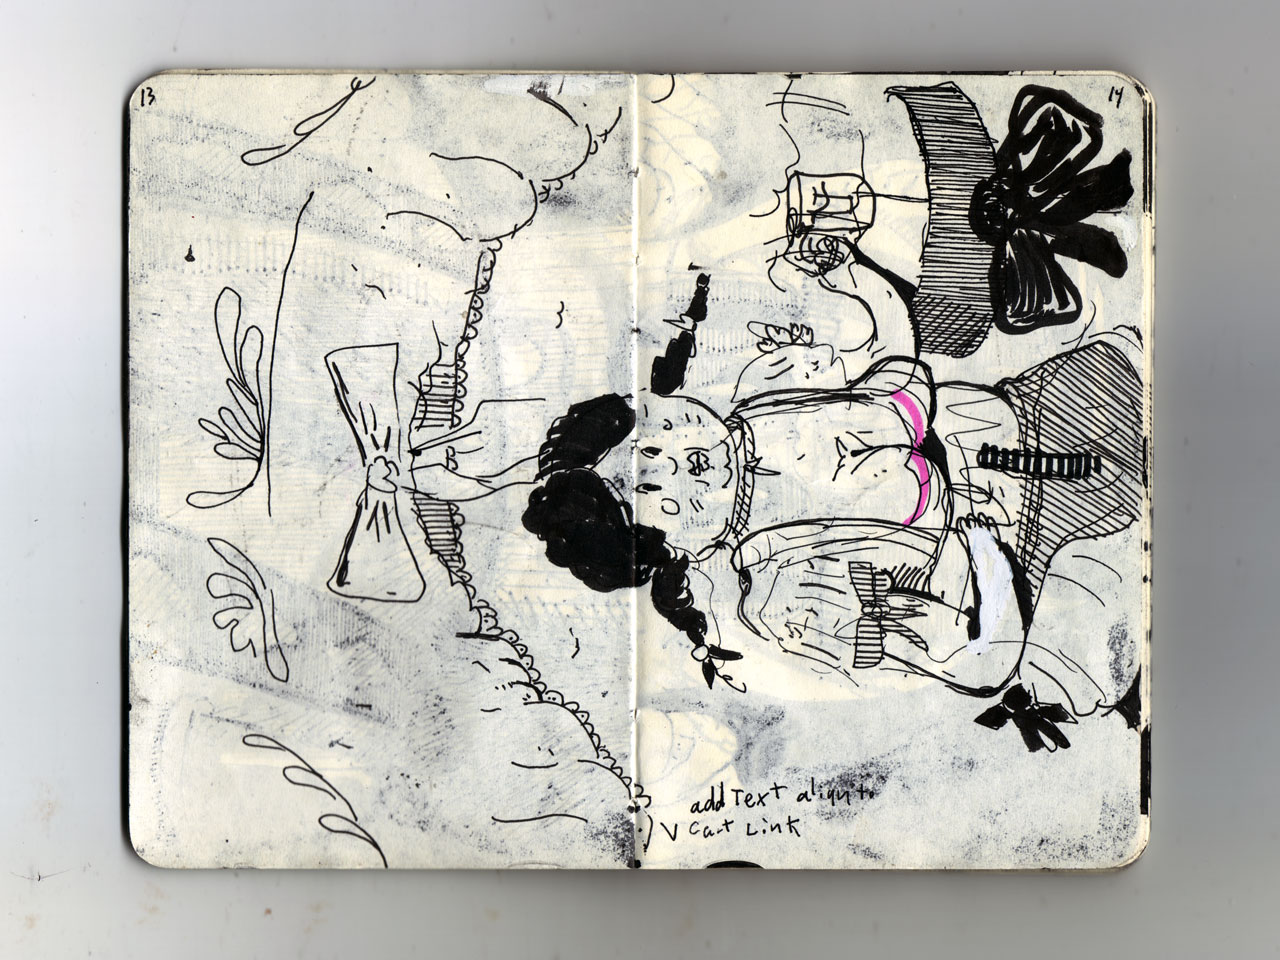 13
14
add Text align to
V Cart Link